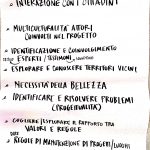 • INTERAZIONE CON I CITTADINI
• MULTICULTURALITÀ ATTORI
COINVOLTI NEL PROGETTO
• IDENTIFICAZIONE E COINVOLGIMENTO
ESPERTI / TESTIMONI
• ESPLORARE E CONOSCERE TERRITORI VICINI
• NECESSITÀ DELLA BELLEZZA
• IDENTIFICARE E RISOLVERE PROBLEMI
(PROGETTUALITÀ)
• COGLIERE / ESPLORARE IL RAPPORTO TRA
VALORI E REGOLE
• REGOLE DI MANUTENZIONE DI PROGETTI / LUOGHI